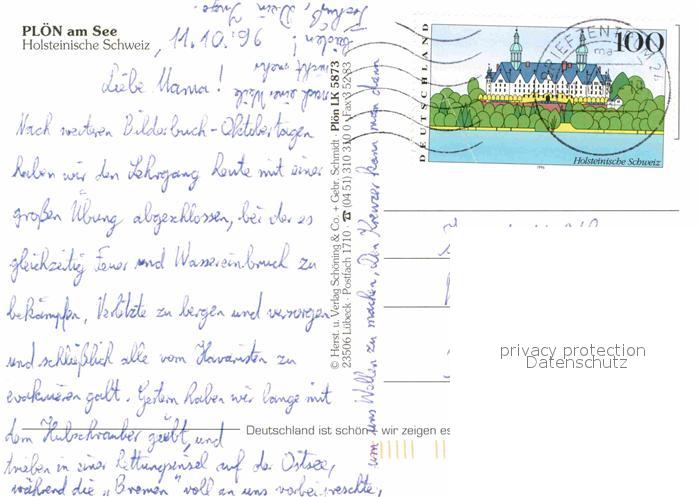 PLÖN am See
Holsteinische Schweiz
11.10.'96
Liebe Mama!
Nach weiteren Bilderbuch-Oktobertagen
haben wir den Lehrgang heute mit einer
großen Übung abgeschlossen, bei der es
gleichzeitig Feuer und Wassereinbruch zu
bekämpfen, Verletzte zu bergen und versorgen
und schließlich alle vom Havaristen zu
evakuieren galt. Gestern haben wir lange mit
dem Hubschrauber geübt, und
trieben in einer Rettungsinsel auf der Ostsee,
während die „Bremen" voll an uns vorbei preschte,
um uns Wellen zu machen. Den Kreuzer kann man dann
noch eine Weile
nicht mehr
! Dein Ingo.
© Herst. u. Verlag Schöning & Co. + Gebr. Schmidt · Plön LK 5873
23506 Lübeck · Postfach 1710 · ☎ (04 51) 310 310 0 · Fax 3 52 83
Deutschland ist schön · wir zeigen es
DEUTSCHLAND
100
Holsteinische Schweiz
1996
BRIEFZENTRUM
ma
privacy protection
Datenschutz